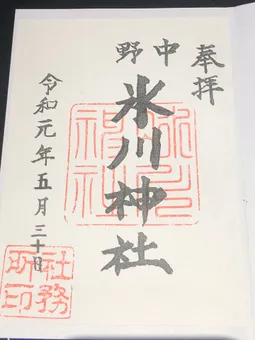 奉拝
中野
氷川神社
氷川
神社
令和元年五月三十日
社務
所印